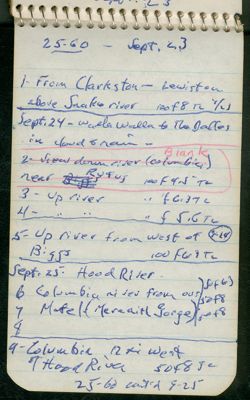 25-60 - Sept. 23
1- From Clarkston - Lewiston
above Snake river 100 f 8
Sept. 24 - Walla Walla to The Dalles
in cloud & rain -
Blank
2- View down river (Columbia)
near Rufus 100 f 4.5
3 - Up river " f 6.3
4 - " " " f 5.6
5- Up river from west of 9-24
Biggs 100 f 6.3
Sept. 25. Hood River.
6 Columbia river from our 50 f 6.3
7 Motel (Meredith Gorge) 50 f 8
8 50 f 8
9 - Columbia 12 mi west
of Hood River 50 f 8
25-60 9-25